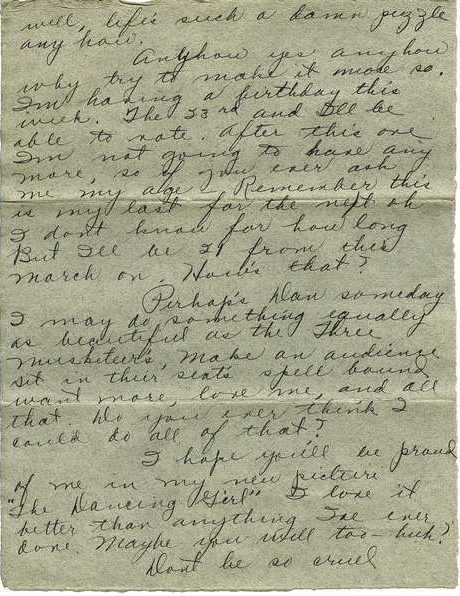 well, life's such a damn puzzle
anyhow.
Anyhow yes anyhow
why try to make it more so.
I'm having a birthday this
week. The 23rd and I'll be
able to vote. After this one
I'm not going to have any
more, so if you ever ask
me my age Remember this
is my last for the next oh
I dont know for how long
But I'll be 21 from this
march on. How's that?
Perhap's Dan someday
I may do something equally
as beautiful as the Three
musketeer's, make an audience
sit in thier seats spell bound
want more, love me, and all
that. Do you ever think I
could do all of that?
I hope you'll be proud
of me in my new picture
"The Dancing Girl" I love it
better than anything I've ever
done. Maybe you will too - huh?
Dont be so cruel